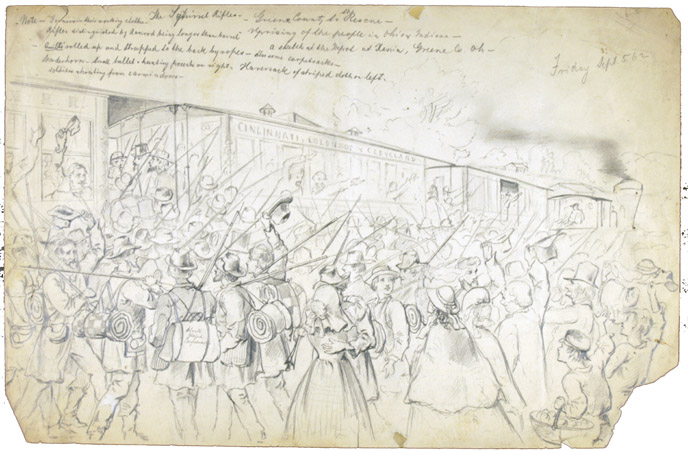 Note – in their working clothes. The Squirrel Rifles – Greene County to the Rescue –
Rifles distinguished by being longer than Uprising of the people in Ohio & Indiana –
rolled up and strapped to the back by ropes – a sketch at the Depot at Xenia, Greene Co. Oh –
some carpet sacks –
Powderhorn. Small bullet & hunting pouch on right. Haversack of striped cloth on left.
shouting from cars
Friday Sept 5 62
CINCINNATI, COLUMBUS & CLEVELAND
R R